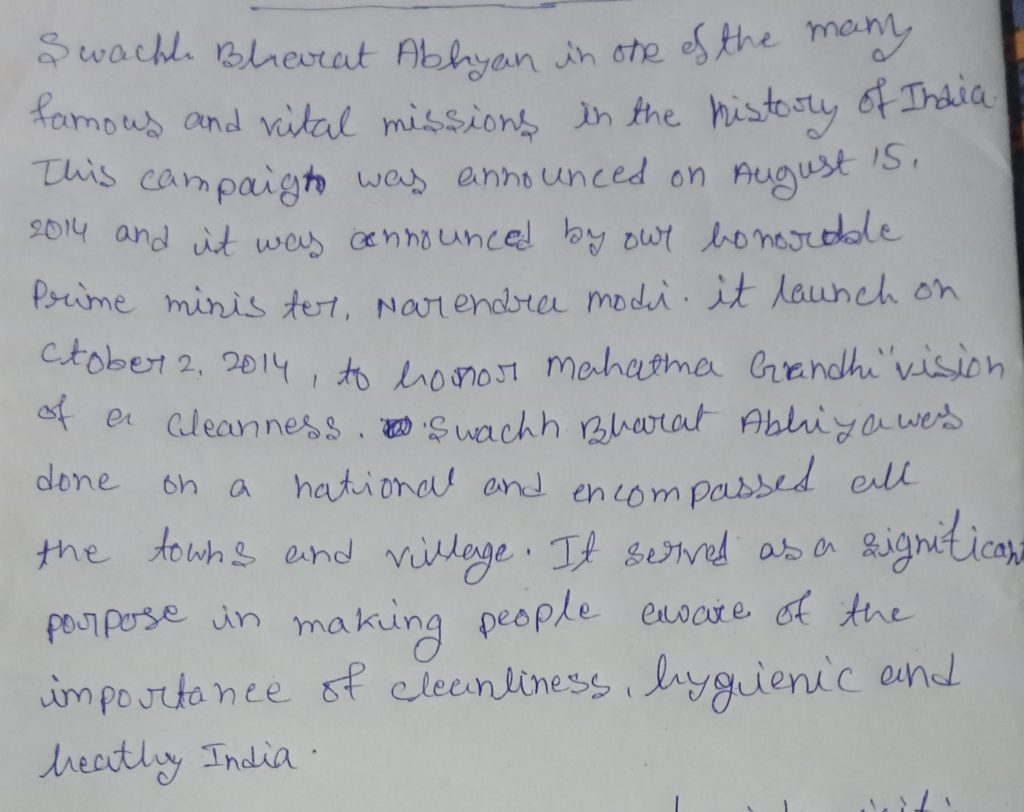 Swachh Bharat Abhyan in one of the many
famous and vital missions in the history of India.
This campaign was announced on August 15,
2014 and it was announced by our honorable
Prime minister, Narendra modi. it launch on
ctober 2, 2014, to honor mahatma Gandhi "vision
of a cleanness. Swachh Bharat Abhiya was
done on a national and encompassed all
the towns and village. It served as a significant
porpose in making people aware of the
importance of cleanliness, hyguienic and
heathy India.